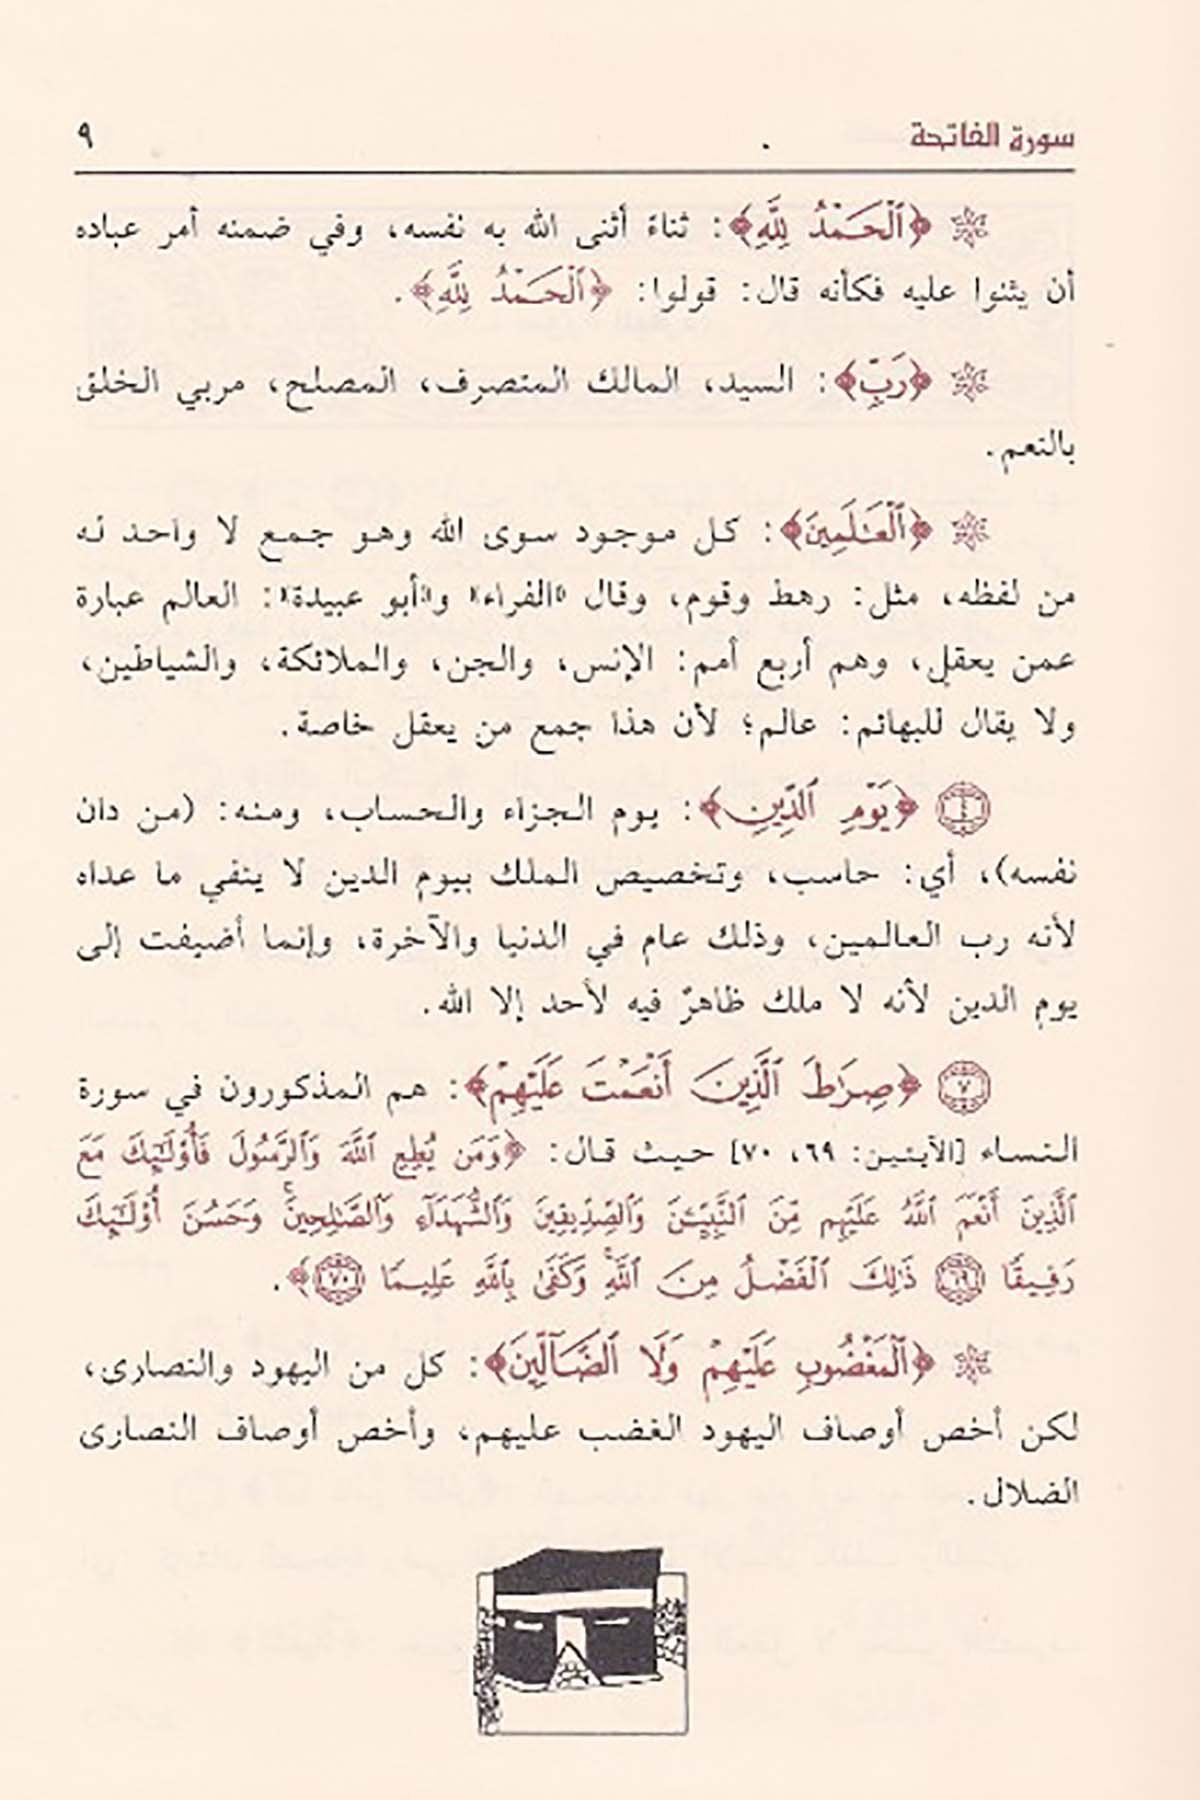 سورة الفاتحة ٩
﴿ٱلْحَمْدُ لِلَّهِ﴾: ثناءً أثنى الله به نفسه، وفي ضمنه أمر عباده
أن يثنوا عليه فكأنه قال: قولوا: ﴿ٱلْحَمْدُ لِلَّهِ﴾.
﴿رَبِّ﴾: السيد، المالك المتصرف، المصلح، مربي الخلق
بالنعم.
﴿ٱلْعَـٰلَمِينَ﴾: كل موجود سوى الله وهو جمع لا واحد له
من لفظه، مثل: رهط وقوم، وقال «الفراء» و«أبو عبيدة»: العالم عبارة
عمن يعقل، وهم أربع أمم: الإنس، والجن، والملائكة، والشياطين،
ولا يقال للبهائم: عالم؛ لأن هذا جمع من يعقل خاصة.
٤ ﴿يَوْمِ ٱلدِّينِ﴾: يوم الجزاء والحساب، ومنه: (من دان
نفسه)، أي: حاسب، وتخصيص الملك بيوم الدين لا ينفي ما عداه
لأنه رب العالمين، وذلك عام في الدنيا والآخرة، وإنما أضيفت إلى
يوم الدين لأنه لا ملك ظاهرٌ فيه لأحد إلا الله.
٧ ﴿صِرَٰطَ ٱلَّذِينَ أَنْعَمْتَ عَلَيْهِمْ﴾: هم المذكورون في سورة
النساء [الآيتين: ٦٩، ٧٠] حيث قال: ﴿وَمَن يُطِعِ ٱللَّهَ وَٱلرَّسُولَ فَأُو۟لَـٰٓئِكَ مَعَ
ٱلَّذِينَ أَنْعَمَ ٱللَّهُ عَلَيْهِم مِّنَ ٱلنَّبِيِّـۧنَ وَٱلصِّدِّيقِينَ وَٱلشُّهَدَآءِ وَٱلصَّـٰلِحِينَ ۚ وَحَسُنَ أُو۟لَـٰٓئِكَ
رَفِيقًا ٦٩ ذَٰلِكَ ٱلْفَضْلُ مِنَ ٱللَّهِ ۚ وَكَفَىٰ بِٱللَّهِ عَلِيمًا ٧٠﴾.
﴿ٱلْمَغْضُوبِ عَلَيْهِمْ وَلَا ٱلضَّآلِّينَ﴾: كل من اليهود والنصارى،
لكن أخص أوصاف اليهود الغضب عليهم، وأخص أوصاف النصارى
الضلال.